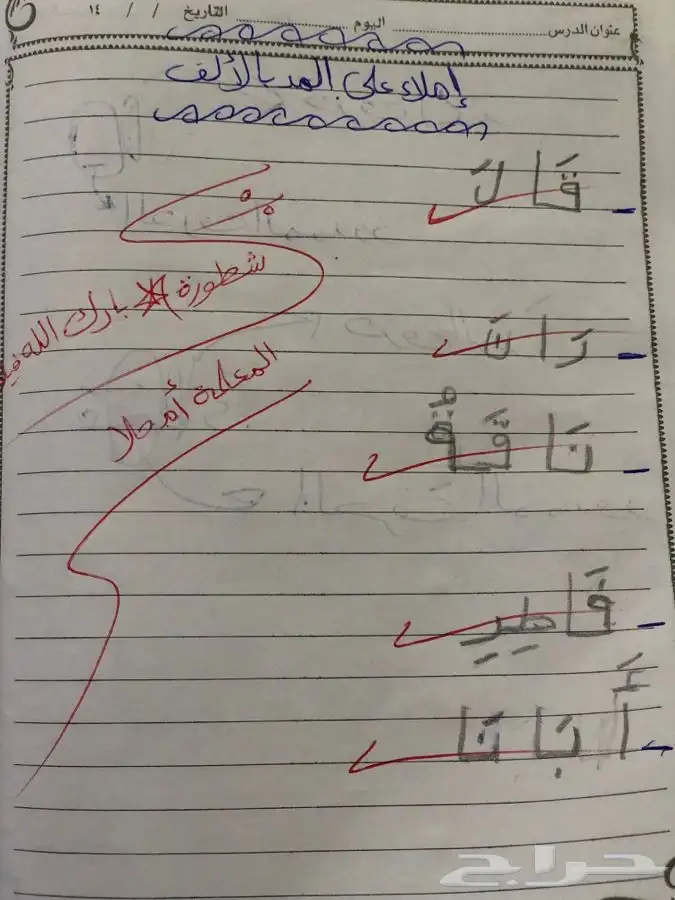 عنوان الدرس اليوم التاريخ / / ١٤
إملاء على المد بالألف
قَالَ
رَانَ
نَاقَة
شطورة بارك الله
المعلمة أم حلا
قَاطِرِ
أَبَانَا
حراج